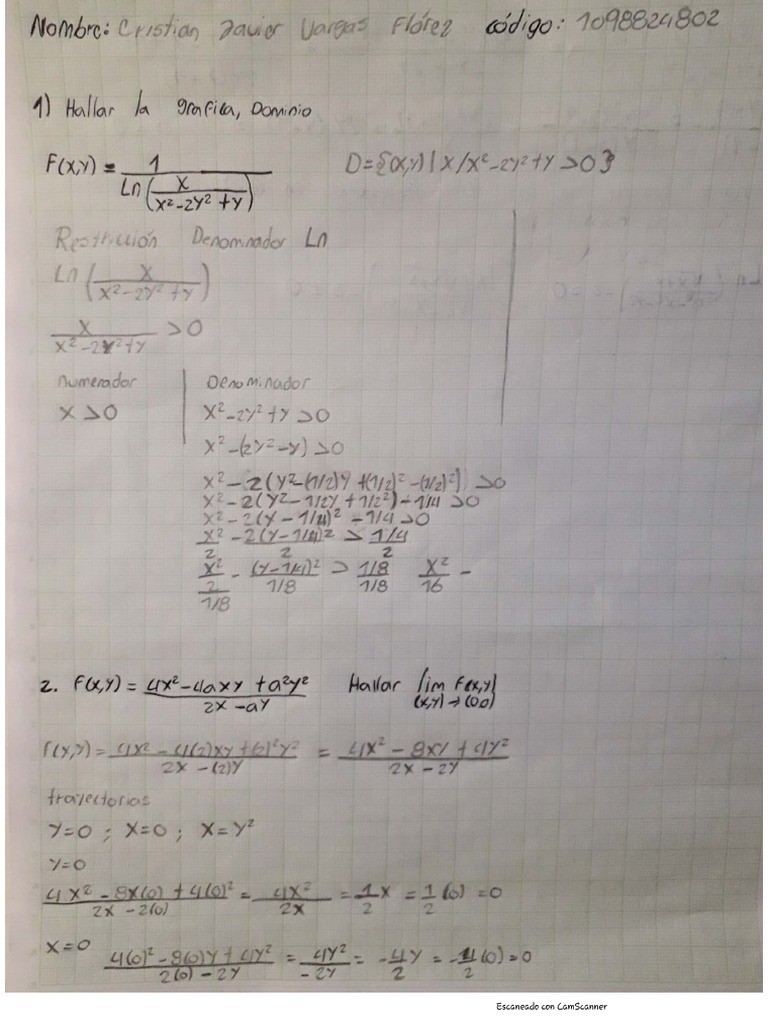 Nombre: Cristian Javier Vargas Flórez código: 1098824802
1) Hallar la grafica, Dominio
F(x,y) = 1 / Ln(x / (x²-2y²+y)) D={(x,y) | x/x²-2y²+y >0}
Restricción Denominador Ln
Ln (x / (x²-2y²+y))
x / (x²-2y²+y) >0
numerador Denominador
x >0 x²-2y²+y >0
x²-(2y²-y) >0
x²-2(y²-(1/2)y +(1/2)²-(1/2)²) >0
x²-2(y²-1/2y+1/2²)-1/4 >0
x²-2(y-1/4)²-1/4 >0
x²/2 - 2(y-1/4)²/2 > 1/4/2
x²/2/1/8 - (y-1/4)²/1/8 > 1/8/1/8 x²/16 -
2. F(x,y) = (4x²-4axy+a²y²) / (2x-ay) Hallar lim F(x,y) (x,y)→(0,0)
f(x,y) = (4x²-4(2)xy+(2)²y²) / (2x-(2)y) = (4x²-8xy+4y²) / (2x-2y)
trayectorias
y=0 ; x=0 ; x=y²
y=0
(4x²-8x(0)+4(0)²) / (2x-2(0)) = 4x²/2x = 1/2 x = 1/2 (0) = 0
x=0 (4(0)²-8(0)y+4y²) / (2(0)-2y) = 4y²/-2y = -4y/2 = -4/2 (0) = 0
Escaneado con CamScanner